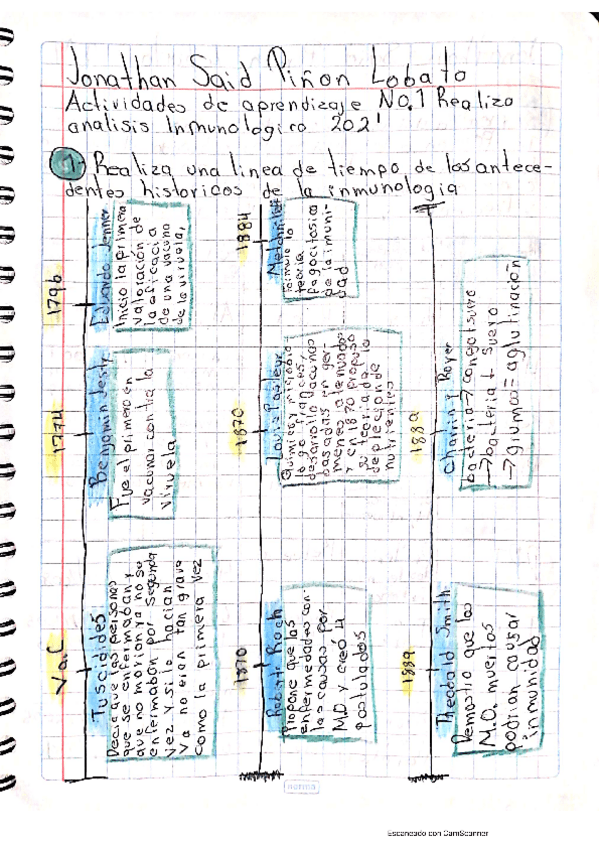 Jonathan Said Piñon Lobato
Actividades de aprendizaje No.1 Realizo
analisis Inmunologico 2021
1- Realiza una linea de tiempo de los antece-
dentes historicos de la inmunologia
V a.C
Tuscidides
Decia que las personas
que se enfermaban y
que no morian ya no se
enfermaban por segunda
vez y si lo hacian
ya no eran tan grave
como la primera vez
1774
Benjamin Jesty
Fue el primero en
vacunar contra la
viruela
1796
Eduardo Jenner
Inicio la primera
valoración de
la eficacia
de una vacuna
de la viruela,
1870
Robert Koch
Propone que las
enfermedades con-
las causas por
M.O y creó 4
postulados
1870
Louis Pasteur
Quimico y microbio-
logo frances,
desarrollo vacunas
basadas en ger-
menes atenuados
y en 1870 propuso
su teoria de la
depleción de
nutrientes
1884
Metchnikoff
formulo la
teoria
fagocitosica
de la inmuni-
dad
1889
Theobald Smith
Demostro que los
M.O. muertos
podrian causar
inmunidad
1889
Charin y Royer
bacteria→
→bacteria + suero
→grumos= aglutinación
norma
Escaneado con CamScanner